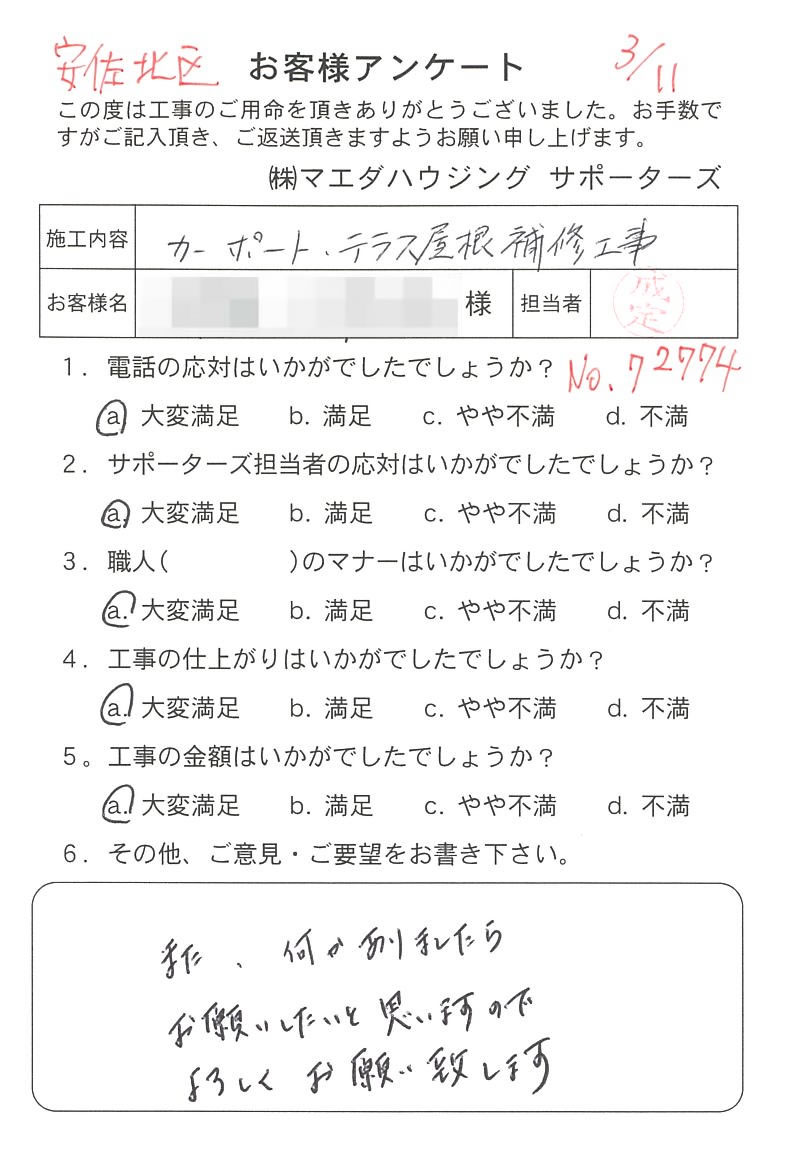 安佐北区 お客様アンケート 3/11
この度は工事のご用命を頂きありがとうございました。お手数で
すがご記入頂き、ご返送頂きますようお願い申し上げます。
㈱マエダハウジング サポーターズ
施工内容 カーポート、テラス屋根補修工事
お客様名 様 担当者 成定
1. 電話の応対はいかがでしたでしょうか？ No.72774
a. 大変満足 b. 満足 c. やや不満 d. 不満
2. サポーターズ担当者の応対はいかがでしたでしょうか？
a. 大変満足 b. 満足 c. やや不満 d. 不満
3. 職人( )のマナーはいかがでしたでしょうか？
a. 大変満足 b. 満足 c. やや不満 d. 不満
4. 工事の仕上がりはいかがでしたでしょうか？
a. 大変満足 b. 満足 c. やや不満 d. 不満
5。工事の金額はいかがでしたでしょうか？
a. 大変満足 b. 満足 c. やや不満 d. 不満
6. その他、ご意見・ご要望をお書き下さい。
また、何かありましたら
お願いしたいと思いますので
よろしくお願い致します